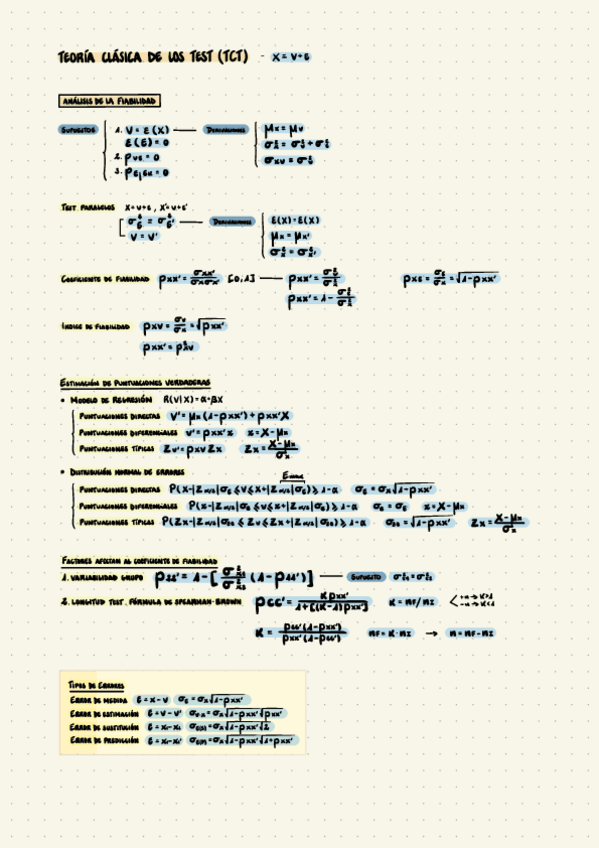 TEORÍA CLÁSICA DE LOS TEST (TCT) - X = V + E
ANÁLISIS DE LA FIABILIDAD
SUPUESTOS 1. V = E(X) — DERIVACIONES μx = μv
E(E) = 0 σ²x = σ²v + σ²E
2. ρVE = 0 σxv = σ²v
3. ρEjEk = 0
TEST PARALELOS X = V + E , X' = V + E'
σ²E = σ²E' — DERIVACIONES E(X) = E(X')
V = V' μx = μx'
σ²x = σ²x'
COEFICIENTE DE FIABILIDAD ρxx' = σxx'/σxσx' [0,1] — ρxx' = σ²v/σ²x ρxE = σE/σx = √1-ρxx'
ρxx' = 1 - σ²E/σ²x
ÍNDICE DE FIABILIDAD ρxv = σv/σx = √ρxx'
ρxx' = ρ²xv
ESTIMACIÓN DE PUNTUACIONES VERDADERAS
• MODELO DE REGRESIÓN R(V|X) = α + βX
PUNTUACIONES DIRECTAS V' = μx (1-ρxx') + ρxx'X
PUNTUACIONES DIFERENCIALES v' = ρxx'x x = X - μx
PUNTUACIONES TÍPICAS Zv' = ρxv Zx Zx = X-μx/σx
• DISTRIBUCIÓN NORMAL DE ERRORES
Emax
PUNTUACIONES DIRECTAS P(X-|Zα/2|σE ≤ V ≤ X+|Zα/2|σE) ≥ 1-α σE = σx√1-ρxx'
PUNTUACIONES DIFERENCIALES P(x-|Zα/2|σe ≤ v ≤ x+|Zα/2|σe) ≥ 1-α σe = σE x = X - μx
PUNTUACIONES TÍPICAS P(Zx-|Zα/2|σze ≤ Zv ≤ Zx+|Zα/2|σze) ≥ 1-α σze = √1-ρxx' Zx = X-μx/σx
FACTORES AFECTAN AL COEFICIENTE DE FIABILIDAD
1. VARIABILIDAD GRUPO ρ22' = 1 - [σ²x1/σ²x2 (1-ρ11')] — SUPUESTO σ²E1 = σ²E2
2. LONGITUD TEST. FÓRMULA DE SPEARMAN-BROWN ρcc' = Kρxx'/1+[(K-1)ρxx'] K = nF/nI +n → K>1
-n → K<1
K = ρcc'(1-ρxx')/ρxx'(1-ρcc') nF = K·nI → n = nF - nI
TIPOS DE ERRORES
ERROR DE MEDIDA E = X - V σE = σx√1-ρxx'
ERROR DE ESTIMACIÓN E = V - V' σv·x = σx√1-ρxx'√ρxx'
ERROR DE SUSTITUCIÓN E = X1 - X2 σE(S) = σx√1-ρxx'√2
ERROR DE PREDICCIÓN E = X1 - X1' σE(P) = σx√1-ρxx'√1+ρxx'